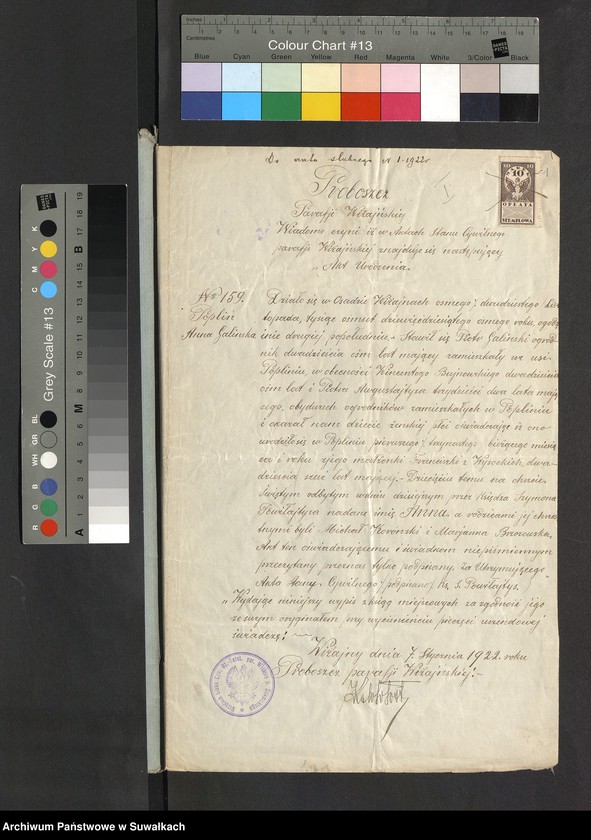 Inches
Centimetres
Colour Chart #13
Blue Cyan Green Yellow Red Magenta White 3/Color Black
DANES PICTA
Grey Scale #13
R G B WH GR BL C M Y K
A 1 2 3 4 5 6 M 8 9 10 11 12 13 14 15 B 17 18 19
Do aktu ślubnego № 1-1922r
10 10
10
OPŁATA
STEMPLOWA
Proboszcz
Parafji Wiżajńskiej
Wiadomo czyni iż w Aktach Stanu Cywilnego
parafji Wiżajńskiej znajduje się następujący
„Akt Urodzenia.
№ 159.
Poplin
Anna Galinska
Działo się w Osadzie Wiżajnach ósmego/dwudziestego/Lis-
topada, tysiąc ośmset dziewięćdziesiątego ósmego roku, o godz-
inie drugiej popołudniu. Stawił się Piotr Galiński ogrod-
nik dwadzieścia ośm lat mający zamieszkały we wsi
Popliniu, w obecności Wincentego Bujnowskiego dwadzieścia
ośm lat i Piotra Augustajtysa trzydzieści dwa lata mają-
cego, obydwuch ogrodników zamieszkałych w Popliniu
i okazał nam dziecię żeńskiej płci oświadczając iż ono
urodziło się w Popliniu pierwszego/trzynastego bieżącego miesią-
ca i roku z jego małżonki Franciszki z Wysockich, dwa-
dzieścia sześć lat mającej. Dziecięciu temu na chrzcie
Świętym odbytym w dniu dzisiejszym przez Księdza Szymona
Powiłajtysa nadane imię Anna a rodzicami jej chrze-
tnymi byli Michał Koronski i Marjanna Brzozowska.
Akt ten oświadczającemu i świadkom niepiśmiennym
przeczytany przez nas tylko podpisany. Za Utrzymującego
Akta Stanu Cywilnego /podpisano/ Ks. S. Powiłajtys.
„Wydając niniejszy wypis z ksiąg miejscowych za zgodność jego
ze swym oryginałem przy wyciśnieniu pieczęci urzędowej
świadczę:
Wiżajny dnia 7. Stycznia 1922. roku
Proboszcz parafji Wiżajńskiej:-
Archiwum Państwowe w Suwałkach